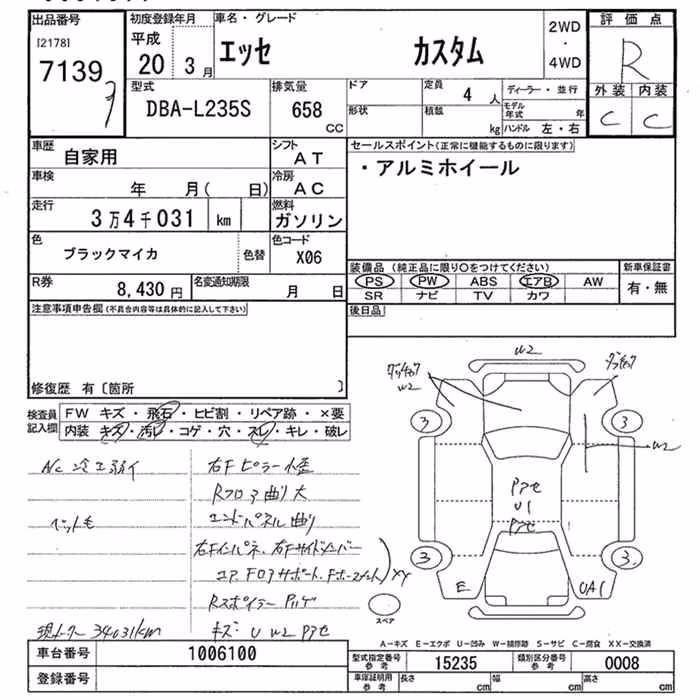 出品番号
[2178]
7139
初度登録年月
平成
20 3月
車名・グレード
エッセ カスタム
2WD
・
4WD
評価点
R
外装 内装
C C
型式
DBA-L235S
排気量
658
CC
ドア
形状
定員
4人
積載
kg
ディーラー・並行
モデル年式 年
ハンドル 左・右
車歴
自家用
シフト
AT
車検
年 月( 日)
冷房
AC
走行
3万4千031 km
燃料
ガソリン
色
ブラックマイカ
色替
色コード
X06
R券
8,430円
名変通知期限
月 日
セールスポイント(正常に機能するものに限ります)
・アルミホイール
装備品 (純正品に限り○をつけてください)
PS PW ABS エアB AW
SR ナビ TV カワ
新車保証書
有・無
後日品
注意事項申告欄(不具合内容等は具体的に記入して下さい)
修復歴 有〔箇所 〕
検査員記入欄
FW キズ・飛石・ヒビ割・リペア跡・×要
内装 キズ・汚レ・コゲ・穴・スレ・キレ・破レ
右Fピラー
Rフロア曲り大
エンドパネル曲り
右Fインパネ、右Fサイドメンバー
XX
Rスポイラー
キズ U W2
現メーター 34031km
W2
W2
W2
3
3
3
3
U1
E
UA1
スペア
A-キズ E-エクボ U-凹み W-補修跡 S-サビ C-腐食 XX-交換済
車台番号
1006100
登録番号
型式指定番号
参考
15235
類別区分番号
参考
0008
車庫証明用
参考
長さ cm
幅 cm
高さ cm